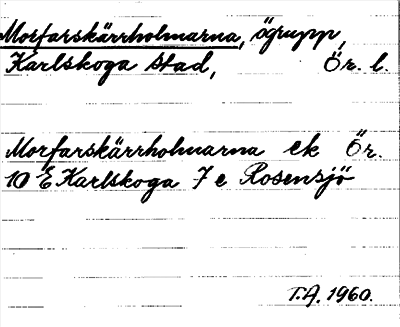 Morfarskärrholmarna, ögrupp,
Karlskoga stad, Ör. l.
Morfarskärrholmarna ek Ör.
10 E Karlskoga 7 e Rosensjö
T.A. 1960.